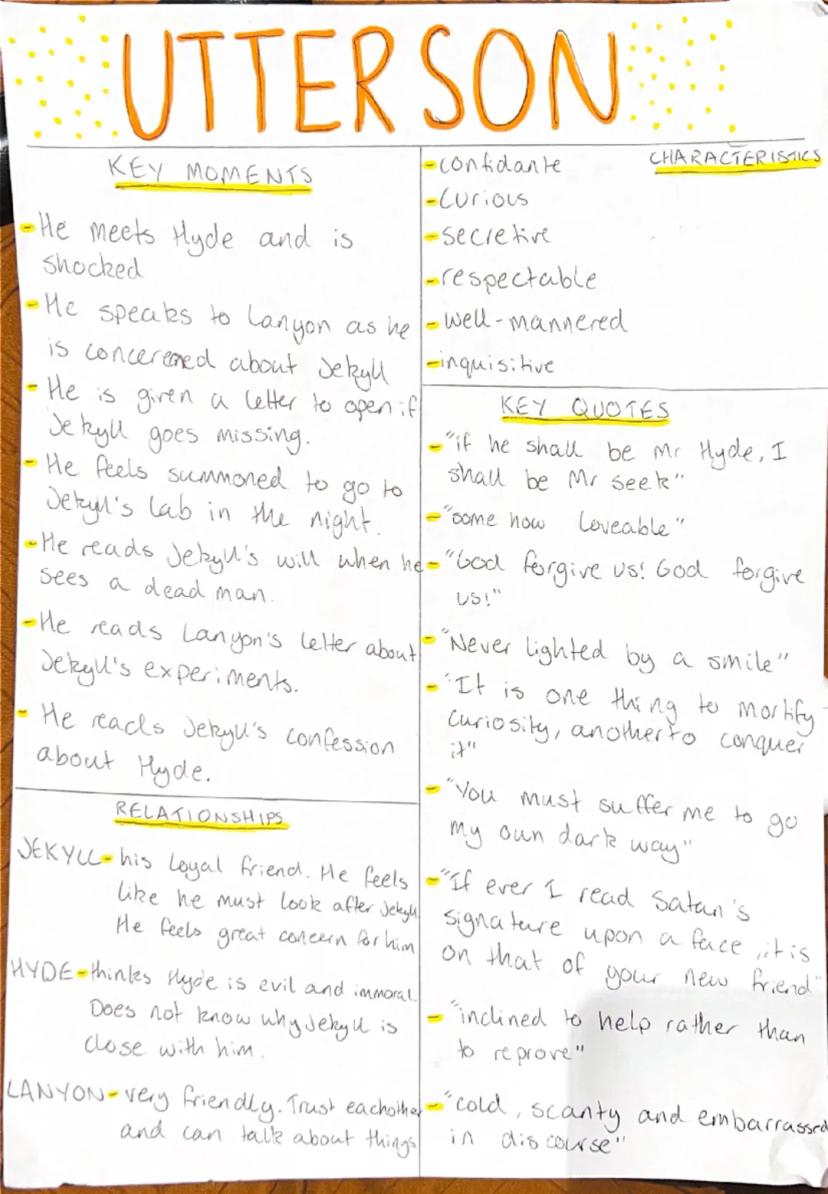 UTTERSON
KEY MOMENTS
-He meets Hyde and is
shocked
-He speaks to Lanyon as he
is concerened about Jekyll
-He is given a letter to open if
Jekyll goes missing.
-He feels summoned to go to
Jekyll's lab in the night.
-He reads Jekyll's will when he
sees a dead man.
-He reads Lanyon's letter about
Jekyll's experiments.
- He reads Jekyll's confession
about Hyde.
RELATIONSHIPS
JEKYLL-his loyal friend. He feels
like he must look after Jekyll
He feels great concern for him
HYDE-thinks Hyde is evil and immoral.
Does not know why Jekyll is
close with him.
LANYON-very friendly. Trust eachother
and can talk about things
CHARACTERISTICS
-confidante
-curious
-secretive
-respectable
-well-mannered
-inquisitive
KEY QUOTES
-"if he shall be Mr Hyde, I
shall be Mr seek"
-"some how loveable"
-"God forgive us! God forgive
us!"
-"Never lighted by a smile"
-"It is one thing to mortify
curiosity, another to conquer
it"
-"You must suffer me to go
my own dark way"
-"If ever I read Satan's
signature upon a face, it is
on that of your new friend"
-"inclined to help rather than
to reprove"
-"cold, scanty and embarrassed
in discourse"